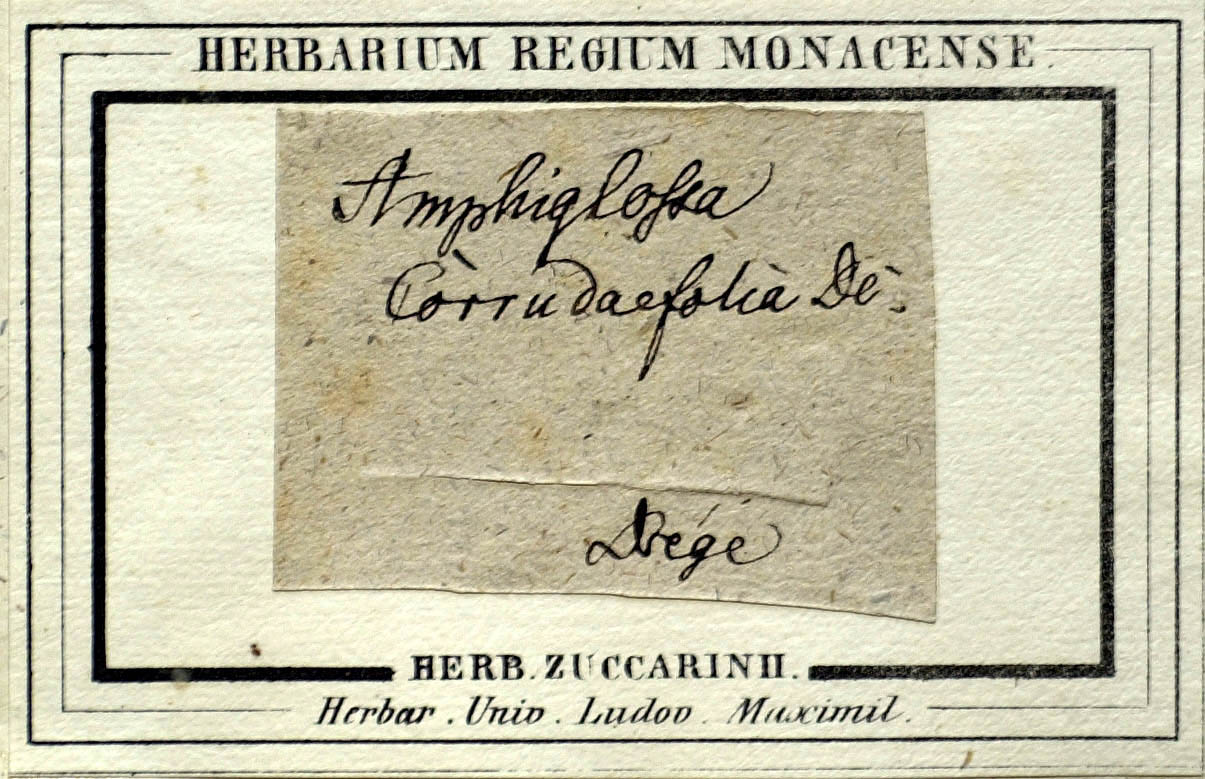 HERBARIUM REGIUM MONACENSE.
Amphiglossa
Corrudaefolia De.
Drége
HERB. ZUCCARINII.
Herbar. Univ. Ludov. Maximil.